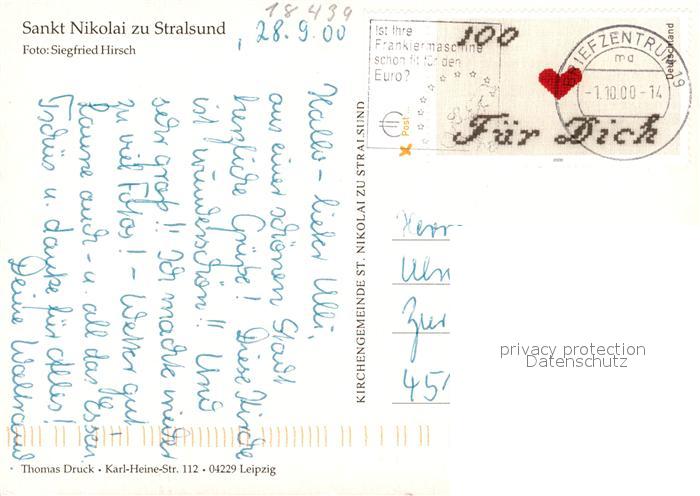 Sankt Nikolai zu Stralsund
Foto: Siegfried Hirsch
18 439
28.9.00
Hallo – lieber Ulli,
aus einer schönen Stadt
herzliche Grüße! Diese Kirche
ist wunderschön!! Und
sehr groß!! Ich machte wieder
zu viel Fotos! – Wetter gut
Laune auch – u. all das Essen.
Tschüs u. danke für alles!
Deine Waltraud
Thomas Druck • Karl-Heine-Str. 112 • 04229 Leipzig
KIRCHENGEMEINDE ST. NIKOLAI ZU STRALSUND
Ist Ihre
Frankiermaschine
schon fit für den
Euro?
Post
100
Für Dich
Deutschland
2000
BRIEFZENTRUM 19
ma
-1.10.00-14
Herr
Zur
45
privacy protection
Datenschutz